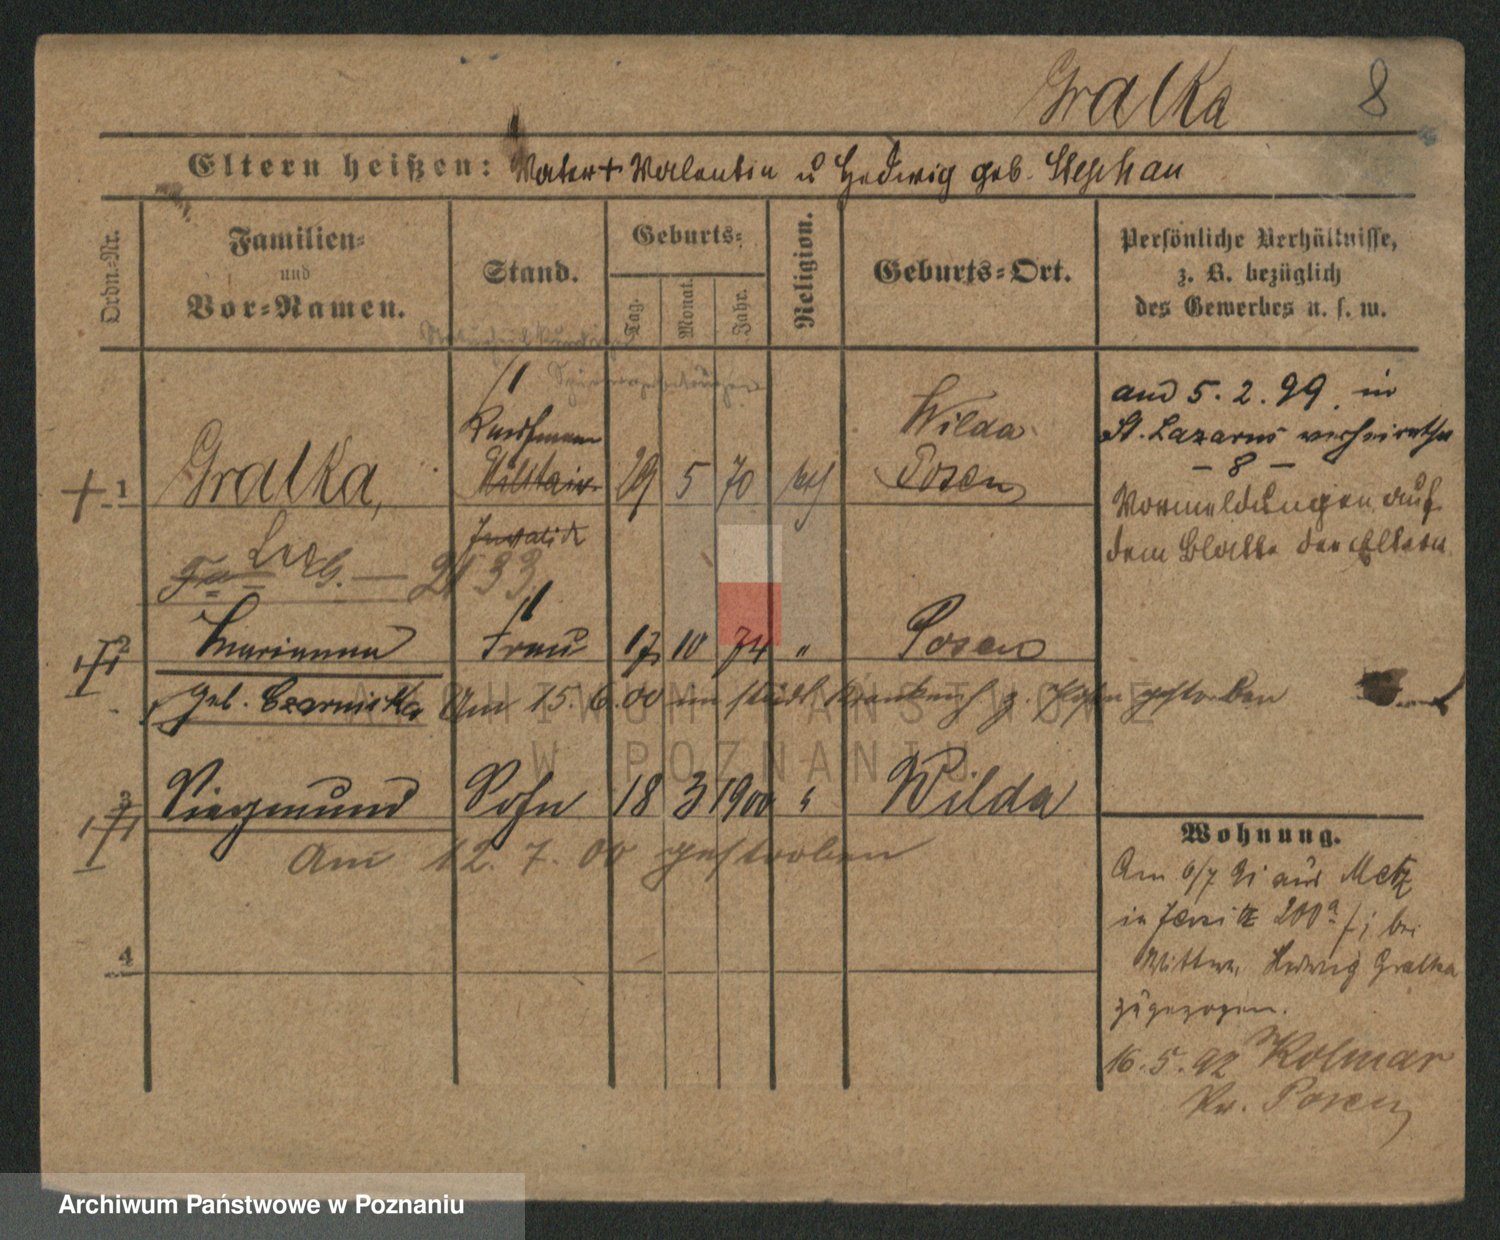 Gralka 8
Eltern heißen: Vater + Valentin u Hedwig geb. Stephan
Ordn.-Nr.
Familien-
und
Vor-Namen.
Stand.
Geburts-
Tag.
Monat.
Jahr.
Religion.
Geburts-Ort.
Persönliche Verhältnisse,
z. B. bezüglich
des Gewerbes u. s. w.
1 Gralka, Kaufmann Militair 29 5 70 kth Wilda Posen
Invalide
2133
2 Marianna Frau 17 10 74 " Posen
geb. Czarnicka Am 15.6.00 im städt. Krankenh z. Posen gestorben
3 Siegmund Sohn 18 3 1900 " Wilda
Am 12.7.00 gestorben
4
am 5.2.99. in
St. Lazarus verheirathet
- 8 -
Vormeldungen auf
dem Blatte der Eltern
Wohnung.
Am 6/7 91 aus Metz
in Jersitz 200a bei
Wittwe Hedwig Gralka
zugezogen.
16.5.92 Kolmar
Pr. Posen
ARCHIWUM PAŃSTWOWE
W POZNANIU
Archiwum Państwowe w Poznaniu